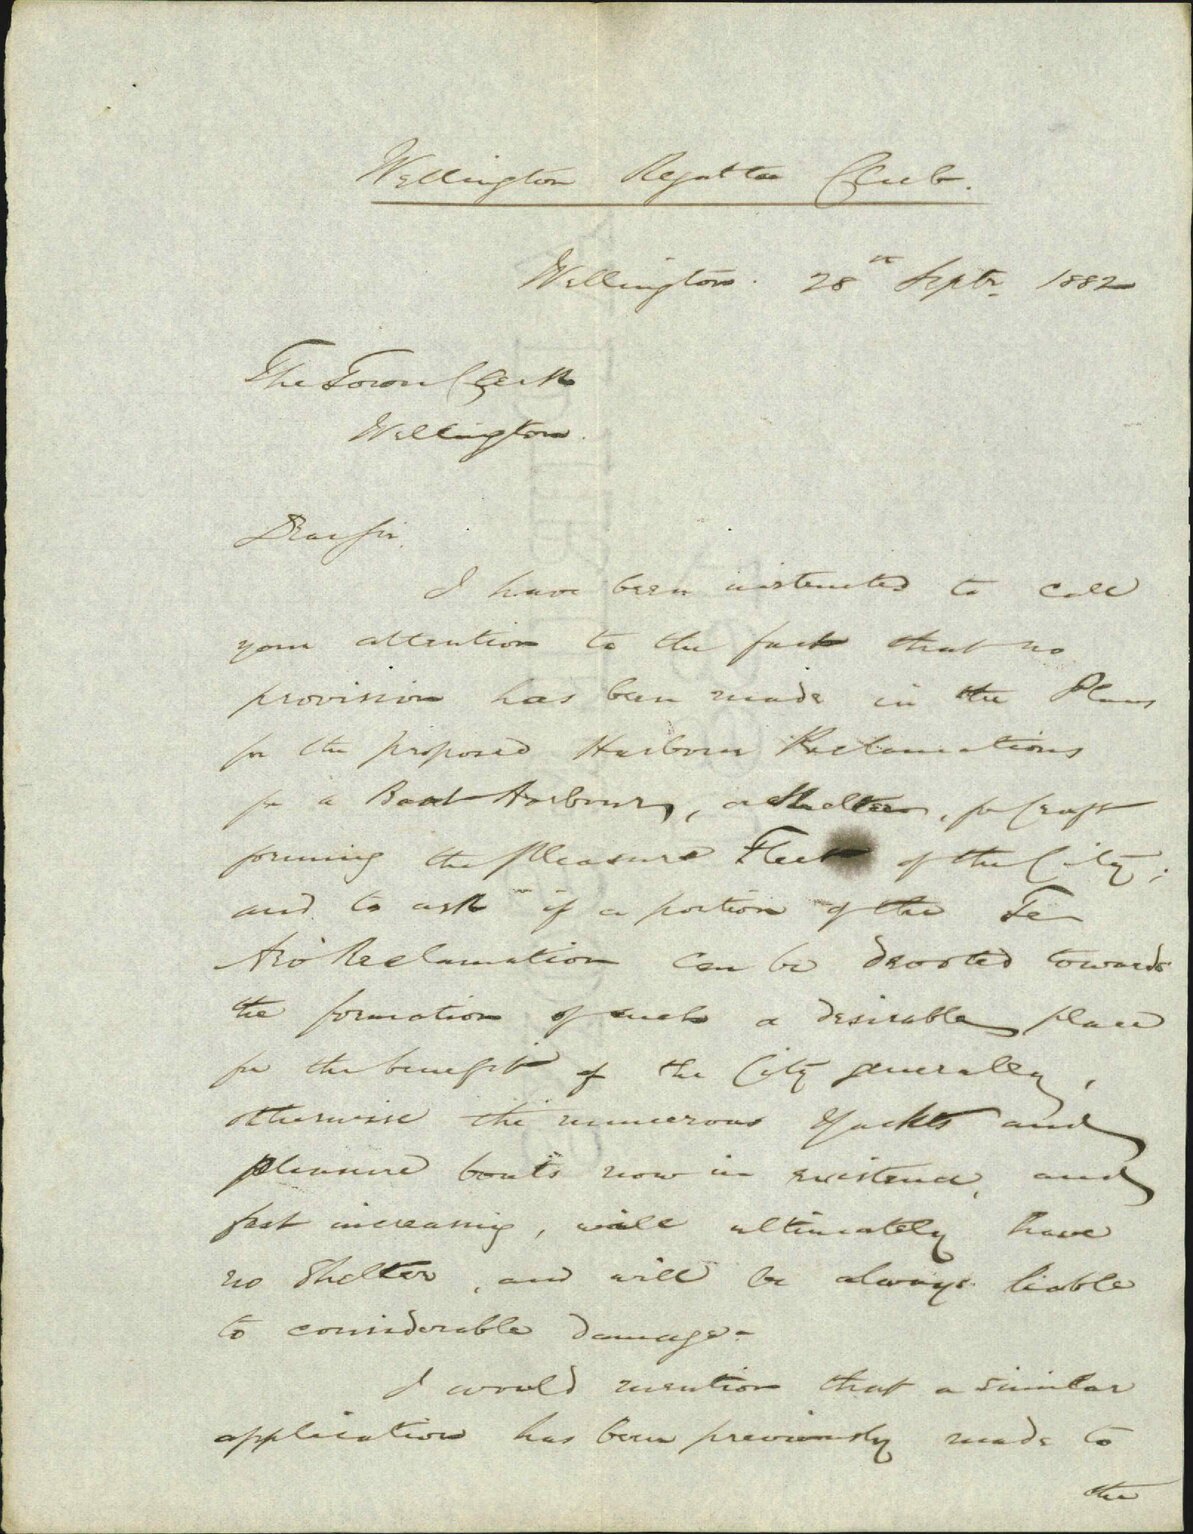 Wellington Regatta Club.
Wellington. 28th Septr. 1882
The Town Clerk
Wellington.
Dear Sir,
I have been instructed to call
your attention to the fact that no
provision has been made in the Plans
for the proposed Harbour Reclamations
for a Boat Harbour, or Shelter, for Craft
forming the pleasure Fleet of the City;
and to ask if a portion of the Te
Aro Reclamation can be devoted towards
the formation of such a desirable place
for the benefit of the City generally,
otherwise the numerous Yachts and
pleasure boats now in existence, and
fast increasing, will ultimately have
no Shelter, and will be always liable
to considerable damage-
I would mention that a similar
application has been previously made to
the